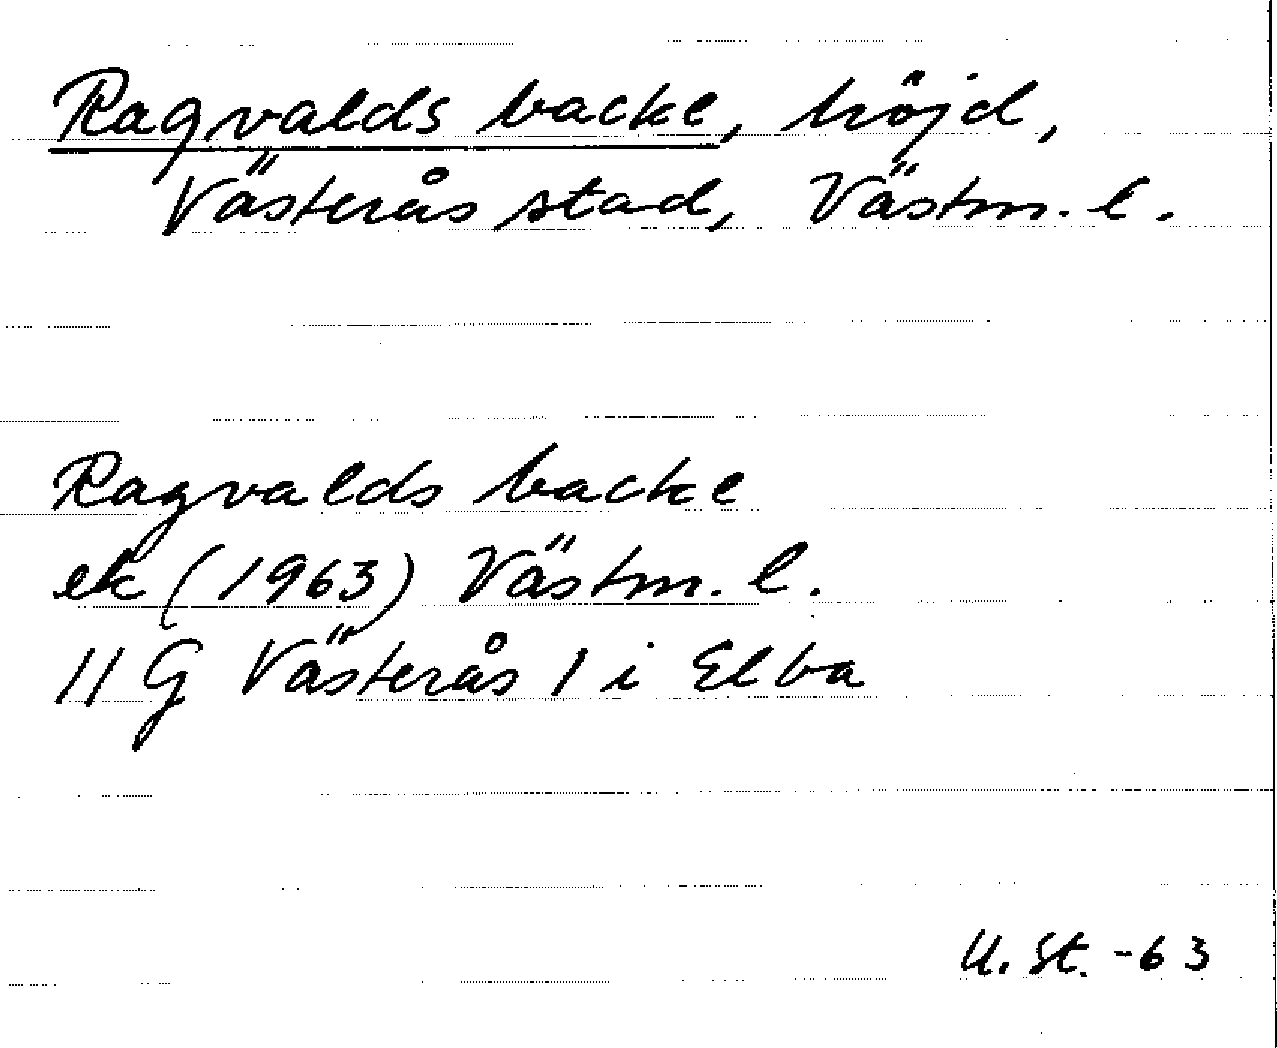 Ragvalds backe, höjd,
Västerås stad, Västm. l.
Ragvalds backe
ek (1963) Västm. l.
11 G Västerås 1 i Elba
U. St. -63